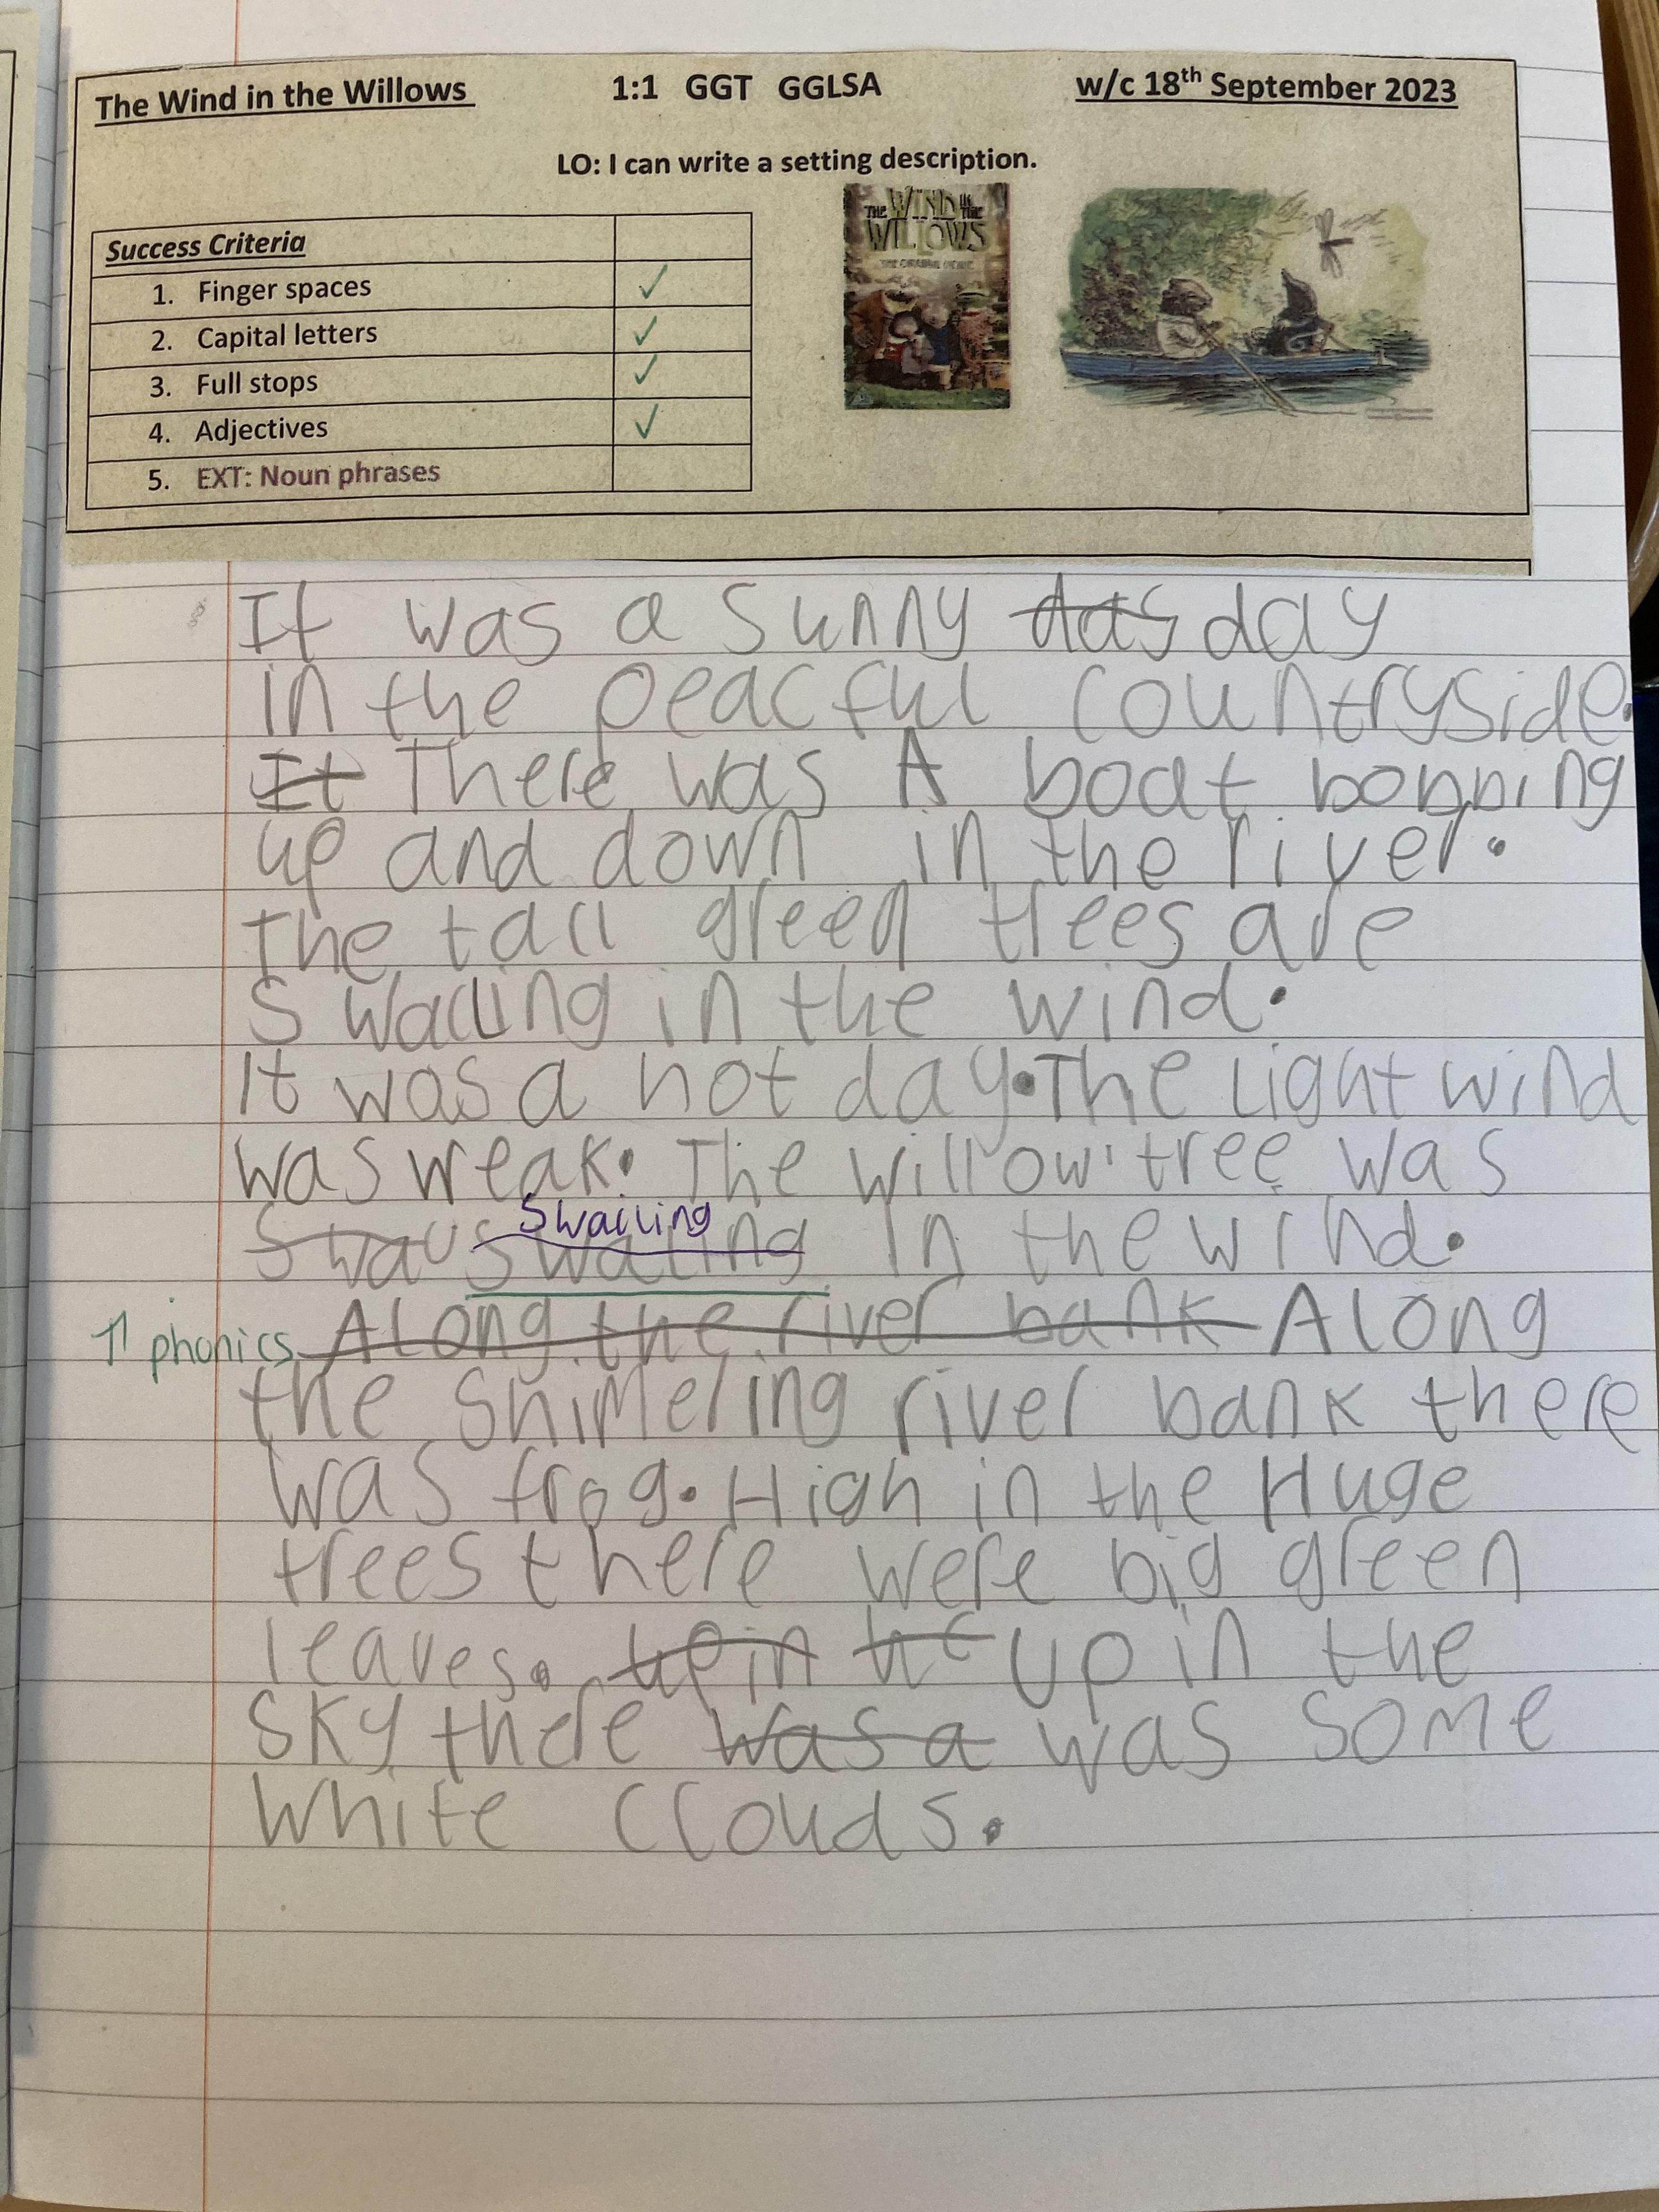 The Wind in the Willows 1:1 GGT GGLSA w/c 18th September 2023
LO: I can write a setting description.
THE WIND IN THE WILLOWS
Success Criteria
1. Finger spaces ✓
2. Capital letters ✓
3. Full stops ✓
4. Adjectives ✓
5. EXT: Noun phrases
It was a sunny day
in the peacful countryside.
It There was A boat bobbing
up and down in the river.
The tall green trees are
Swaciing in the wind.
It was a hot day. The light wind
was weak. The willow tree was
Swaiiing
Swau swaiing in the wind.
↑ phonics Along the river bank Along
the Shimering river bank there
was frog. High in the Huge
trees there were big green
leaves. up in the
sky there was a was some
white clouds.